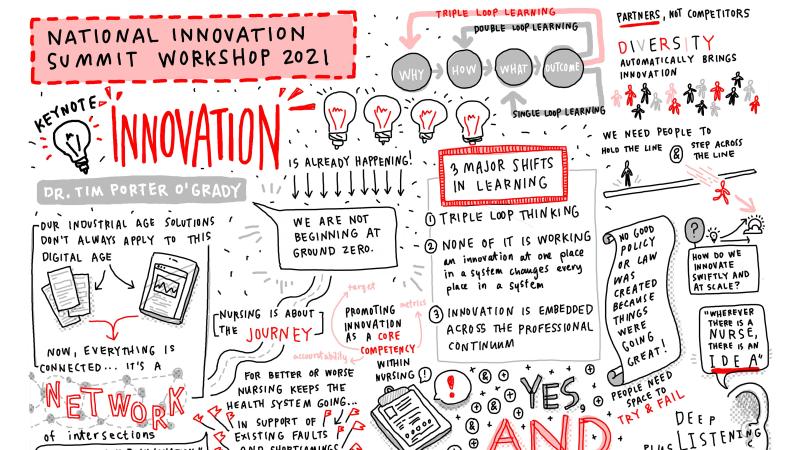 NATIONAL INNOVATION
SUMMIT WORKSHOP 2021
KEYNOTE
INNOVATION
IS ALREADY HAPPENING!
DR. TIM PORTER O'GRADY
WE ARE NOT
BEGINNING AT
GROUND ZERO.
OUR INDUSTRIAL AGE SOLUTIONS
DON'T ALWAYS APPLY TO THIS
DIGITAL AGE
NOW, EVERYTHING IS
CONNECTED... IT'S A
NETWORK
of intersections
NURSING IS ABOUT
THE JOURNEY
target
metrics
accountability
PROMOTING
INNOVATION
AS A CORE
COMPETENCY
WITHIN
NURSING
FOR BETTER OR WORSE
NURSING KEEPS THE
HEALTH SYSTEM GOING...
IN SUPPORT OF
EXISTING FAULTS
AND SHORTCOMINGS
TRIPLE LOOP LEARNING
DOUBLE LOOP LEARNING
WHY
HOW
WHAT
OUTCOME
SINGLE LOOP LEARNING
3 MAJOR SHIFTS
IN LEARNING
1 TRIPLE LOOP THINKING
2 NONE OF IT IS WORKING
an innovation at one place
in a system changes every
place in a system
3 INNOVATION IS EMBEDDED
ACROSS THE PROFESSIONAL
CONTINUUM
!
!
& & & &
YES
AND
PARTNERS, NOT COMPETITORS
DIVERSITY
AUTOMATICALLY BRINGS
INNOVATION
WE NEED PEOPLE TO
HOLD THE LINE & STEP ACROSS
THE LINE
NO GOOD
POLICY
OR LAW
WAS
CREATED
BECAUSE
THINGS
WERE
GOING
GREAT!
?
HOW DO WE
INNOVATE
SWIFTLY AND
AT SCALE?
"WHEREVER
THERE IS A
NURSE,
THERE IS AN
IDEA"
PEOPLE NEED
SPACE TO
TRY & FAIL
DEEP
LISTENING